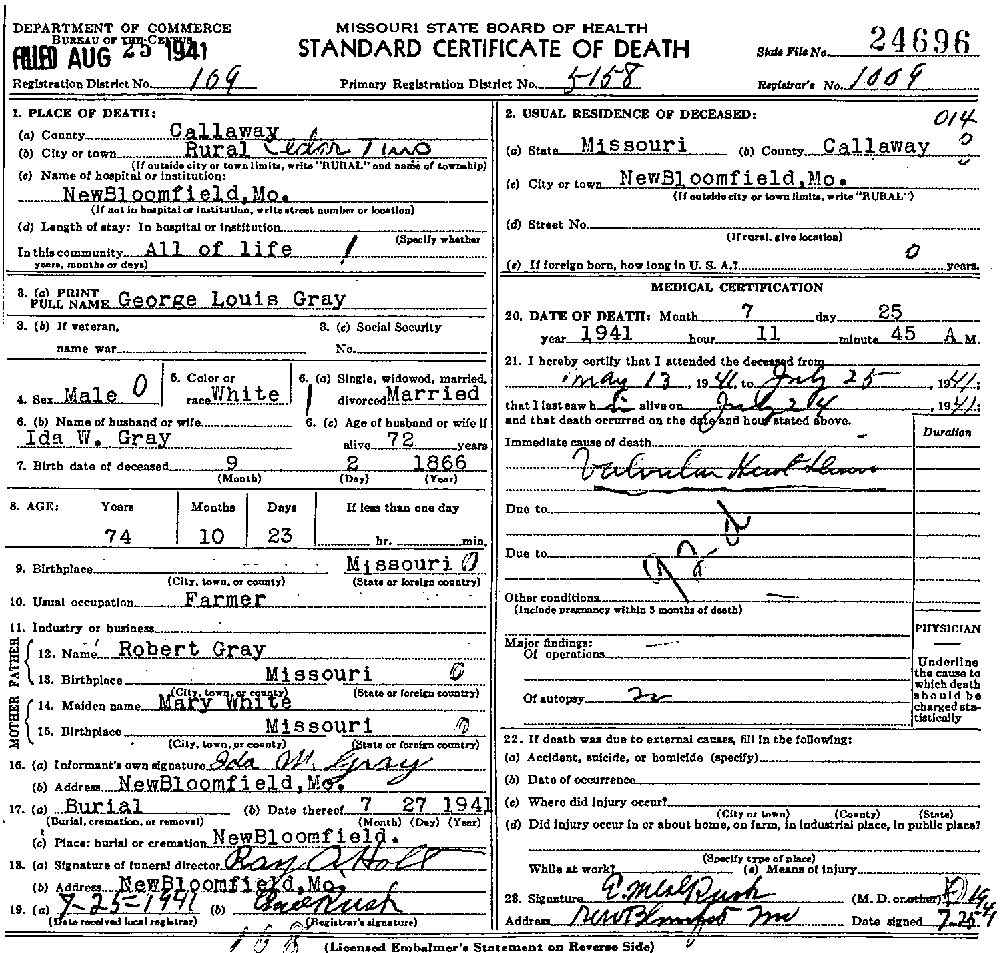 DEPARTMENT OF COMMERCE
BUREAU OF THE CENSUS
FILED AUG 25 1941
MISSOURI STATE BOARD OF HEALTH
STANDARD CERTIFICATE OF DEATH
State File No. 24696
Registration District No. 109
Primary Registration District No. 5158
Registrar's No. 1009
1. PLACE OF DEATH:
(a) County Callaway
(b) City or town Rural Cedar
(If outside city or town limits, write "RURAL" and name of township)
(c) Name of hospital or institution:
NewBloomfield,Mo.
(If not in hospital or institution, write street number or location)
(d) Length of stay: In hospital or institution
(Specify whether
In this community All of life
years, months or days)
3. (a) PRINT
FULL NAME George Louis Gray
3. (b) If veteran,
name war
3. (c) Social Security
No.
4. Sex Male 0
5. Color or
race White
6. (a) Single, widowed, married,
divorced Married
6. (b) Name of husband or wife
Ida W. Gray
6. (c) Age of husband or wife if
alive 72 years
7. Birth date of deceased 9 2 1866
(Month) (Day) (Year)
8. AGE: Years Months Days If less than one day
74 10 23 hr. min.
9. Birthplace Missouri 0
(City, town, or county) (State or foreign country)
10. Usual occupation Farmer
11. Industry or business
FATHER
12. Name Robert Gray
13. Birthplace Missouri 0
(City, town, or county) (State or foreign country)
MOTHER
14. Maiden name Mary White
15. Birthplace Missouri 0
(City, town, or county) (State or foreign country)
16. (a) Informant's own signature Ida W. Gray
(b) Address NewBloomfield,Mo.
17. (a) Burial (b) Date thereof 7 27 1941
(Burial, cremation, or removal) (Month) (Day) (Year)
(c) Place: burial or cremation NewBloomfield.
18. (a) Signature of funeral director Ray A Holt
(b) Address NewBloomfield,Mo.
19. (a) 7-25-1941 (b) Rush
(Date received local registrar) (Registrar's signature)
2. USUAL RESIDENCE OF DECEASED: 014
0
(a) State Missouri (b) County Callaway
(c) City or town NewBloomfield,Mo.
(If outside city or town limits, write "RURAL")
(d) Street No.
(If rural, give location)
(e) If foreign born, how long in U. S. A.? 0 years.
MEDICAL CERTIFICATION
20. DATE OF DEATH: Month 7 day 25
year 1941 hour 11 minute 45 A M.
21. I hereby certify that I attended the deceased from
May 13, 1941 to July 25, 1941;
that I last saw h alive on July 24, 1941;
and that death occurred on the date and hour stated above.
Duration
Immediate cause of death
Valvular Heart
Due to
Due to
Other conditions
(Include pregnancy within 3 months of death)
PHYSICIAN
Major findings:
Of operations
Of autopsy no
Underline
the cause to
which death
should be
charged sta-
tistically
22. If death was due to external causes, fill in the following:
(a) Accident, suicide, or homicide (specify)
(b) Date of occurrence
(c) Where did injury occur?
(City or town) (County) (State)
(d) Did injury occur in or about home, on farm, in industrial place, in public place?
(Specify type of place)
While at work? (e) Means of injury
23. Signature Rush (M. D. or other)
Address New Bloomfield Mo Date signed 7-25
(Licensed Embalmer's Statement on Reverse Side)